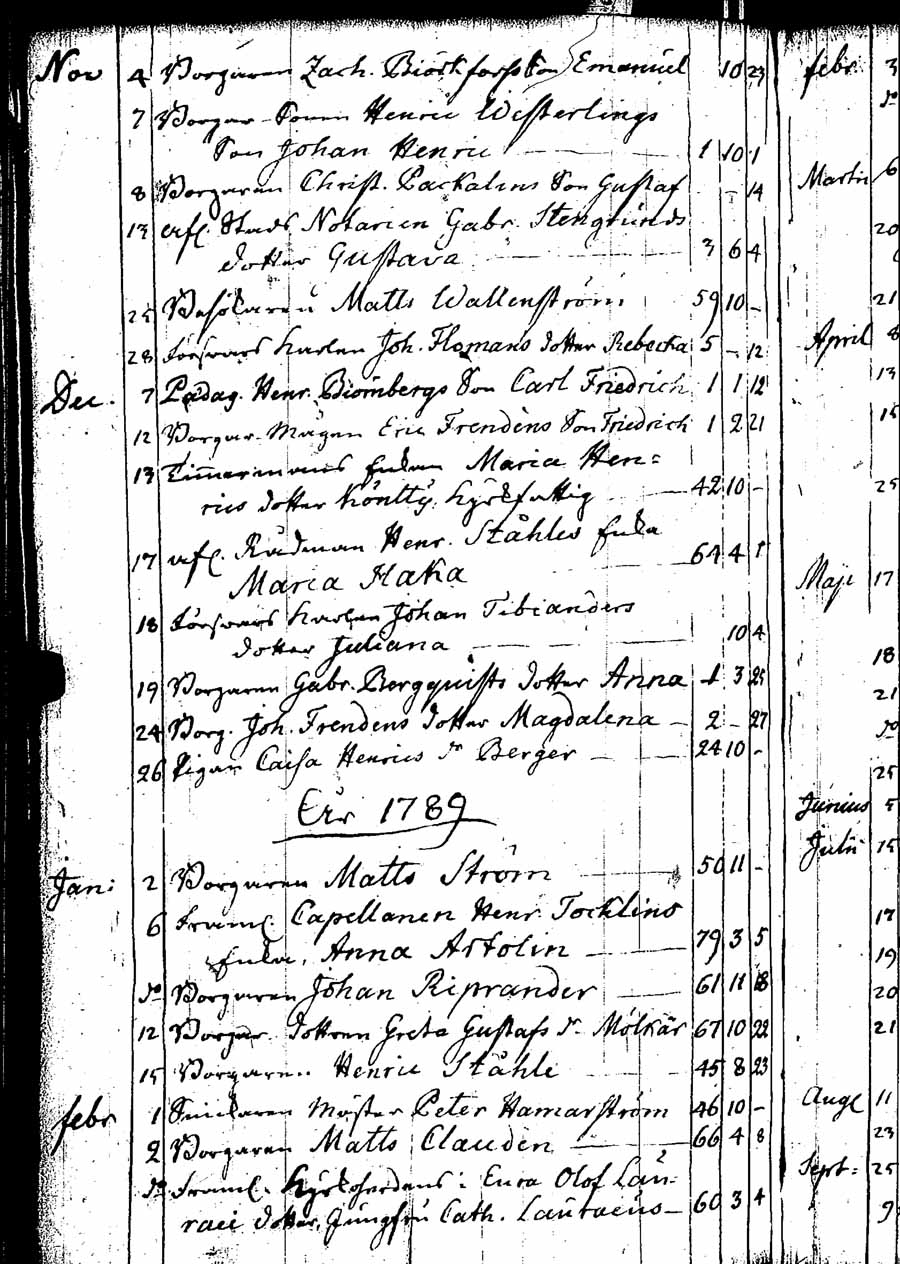 Nov 4 Borgaren Zach. Biörkforss Son Emanuel 10 23
7 Borgar Sonen Henric Westerlings
Son Johan Henric 1 10 1
8 Borgaren Christ. Packalens Son Gustaf - 14
13 afl. Stads Notarien Gabr. Stengrunds
dotter Gustava 3 6 4
25 Besökaren Matts Wallenström 59 10 -
28 Försvars Karlen Joh. Flomans dotter Rebecka 5 - 12
Dec. 7 Pädag. Henr. Biörnbergs Son Carl Friedrich 1 1 12
12 Borgar Mågen Eric Frendéns Son Friedrich 1 2 21
13 Timmermans Enkan Maria Hen=
rics dotter Könttÿ Kyrkfattig 42 10 -
17 afl. Rådman Henr. Ståhles Enka
Maria Haka 64 4 1
18 Försvars Karlen Johan Tibianders
dotter Juliana 10 4
19 Borgaren Gabr. Bergquists dotter Anna 1 3 25
24 Borg. Joh. Frendens dotter Magdalena 2 - 27
26 Pigan Caisa Henrics dr Berger 24 10 -
År 1789
Jan: 2 Borgaren Matts Ström 50 11 -
6 Framl. Capellanen Henr. Tocklins
Enka, Anna Artolin 79 3 5
do Borgaren Johan Riprander 61 11 18
12 Borgar dottren Greta Gustafs dr Mölkär 67 10 22
15 Borgaren Henric Ståhle 45 8 23
febr 1 Snickaren Mäster Peter Hamarström 46 10 -
2 Borgaren Matts Clauden 66 4 8
do Framl. Kyrkoherdens i Eura Olof Lau-
raei dotter, Jungfru Cath. Lauraeus 60 3 4
febr. 3
do
Martii 6
20
21
April 8
13
15
25
Maji 17
18
21
do
25
Junius 5
Julii 15
17
19
20
21
Aug 11
23
Sept: 25
9